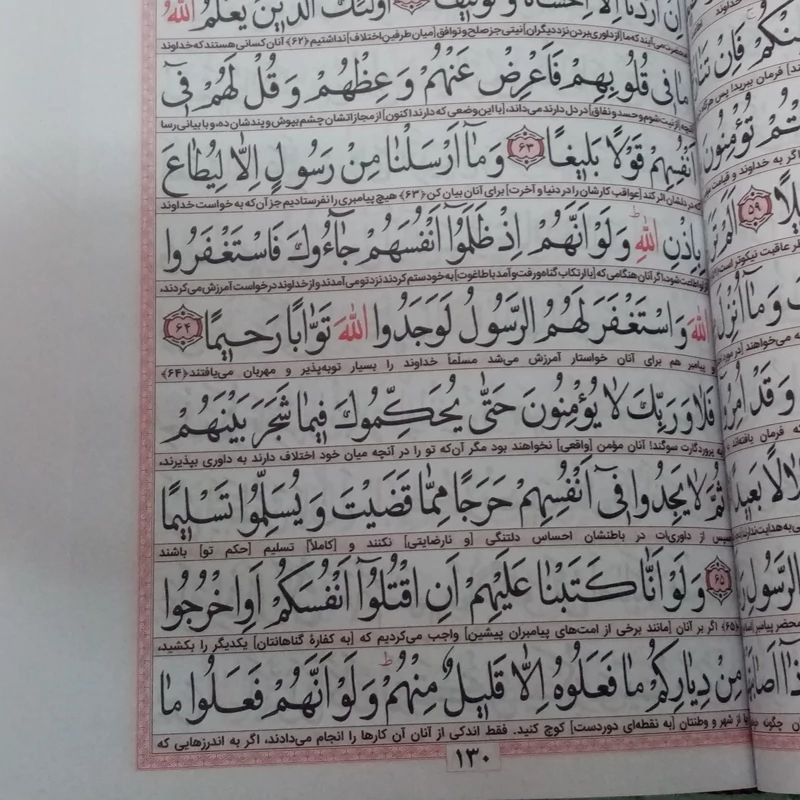 اِنْ اَرَدْنَا اِلَّا اِحْسَانًا وَ تَوْفِيقًا اُولٰئِكَ الَّذِينَ يَعْلَمُ اللّٰهُ
آیند که ما [از داوری بردن نزد دیگران] نیتی جز صلح و توافق [میان طرفین اختلاف] نداشتیم ﴿۶۲﴾ آنان کسانی هستند که خداوند
مَا فِى قُلُوبِهِمْ فَاَعْرِضْ عَنْهُمْ وَ عِظْهُمْ وَ قُلْ لَهُمْ فِىٓ
آنچه [از نیت شوم و حسد و نفاق] در دل دارند می‌داند، [با این وضعی که دارند اکنون] از مجازاتشان چشم بپوش و پندشان ده، و با بیانی رسا
اَنْفُسِهِمْ قَوْلًا بَلِيغًا ﴿۶۳﴾ وَ مَآ اَرْسَلْنَا مِنْ رَسُولٍ اِلَّا لِيُطَاعَ
که در دلشان اثر کند [عواقب کارشان را در دنیا و آخرت] برای آنان بیان کن ﴿۶۳﴾ هیچ پیامبری را نفرستادیم جز آن‌که به خواست خداوند
بِاِذْنِ اللّٰهِ وَ لَوْ اَنَّهُمْ اِذْ ظَلَمُٓوا اَنْفُسَهُمْ جَآءُوكَ فَاسْتَغْفَرُوا
اطاعت شود، اگر آنان هنگامی که [با ارتکاب گناه و رفت و آمد با طاغوت] به خود ستم کردند نزد تو می‌آمدند و از خداوند درخواست آمرزش می‌کردند،
اللّٰهَ وَ اسْتَغْفَرَ لَهُمُ الرَّسُولُ لَوَجَدُوا اللّٰهَ تَوَّابًا رَحِيمًا ﴿۶۴﴾
و پیامبر هم برای آنان خواستار آمرزش می‌شد مسلّماً خداوند را بسیار توبه‌پذیر و مهربان می‌یافتند ﴿۶۴﴾
فَلَا وَ رَبِّكَ لَا يُؤْمِنُونَ حَتّٰى يُحَكِّمُوكَ فِيمَا شَجَرَ بَيْنَهُمْ
به پروردگارت سوگند! آنان مؤمن [واقعی] نخواهند بود مگر آن‌که تو را در آنچه میان خود اختلاف دارند به داوری بپذیرند،
ثُمَّ لَا يَجِدُوا فِىٓ اَنْفُسِهِمْ حَرَجًا مِمَّا قَضَيْتَ وَ يُسَلِّمُوا تَسْلِيمًا
سپس از داوری‌ات در باطنشان احساس دلتنگی [و نارضایتی] نکنند و [کاملاً] تسلیم [حکم تو] باشند
﴿۶۵﴾ وَ لَوْ اَنَّا كَتَبْنَا عَلَيْهِمْ اَنِ اقْتُلُٓوا اَنْفُسَكُمْ اَوِ اخْرُجُوا
﴿۶۵﴾ اگر بر آنان [مانند برخی از امت‌های پیامبران پیشین] واجب می‌کردیم که [به کفارهٔ گناهانتان] یکدیگر را بکشید،
مِنْ دِيَارِكُمْ مَا فَعَلُوهُ اِلَّا قَلِيلٌ مِنْهُمْ وَ لَوْ اَنَّهُمْ فَعَلُوا مَا
یا از شهر و وطنتان [به نقطه‌ای دوردست] کوچ کنید. فقط اندکی از آنان آن کارها را انجام می‌دادند، اگر به اندرزهایی که
۱۳۰